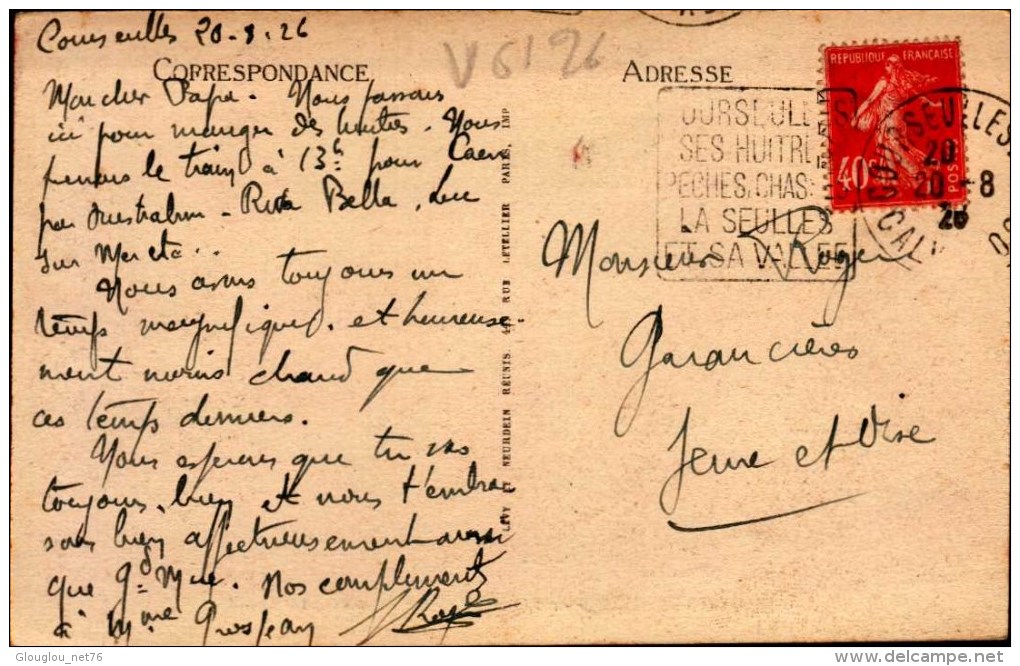 Courseulles 20-8-26
V6196
CORRESPONDANCE
ADRESSE
Mon cher Papa. Nous passons
ici pour manger des huitres. Nous
prenons le train à 13h pour Caen
par Ouistreham - Riva Bella, Luc
sur Mer etc..
Nous avons toujours un
temps magnifique, et heureuse
ment moins chaud que
ces temps derniers.
Nous esperons que tu vas
toujours bien et nous t'embras
sons bien affectueusement ainsi
que Gd Mère. Nos compliments
à Mme Grosjean
Roger
LEVY ET NEURDEIN RÉUNIS, 44, RUE LETELLIER, PARIS, IMP
REPUBLIQUE FRANÇAISE
40
POSTES
COURSEULLES
SES HUITRES
PECHES, CHASSES
LA SEULLES
ET SA VALLEE
COURSEULLES
20
20 - 8
26
CALV
Monsieur Roger
Garancières
Seine et Oise
Glouglou_net76
www.delcampe.net